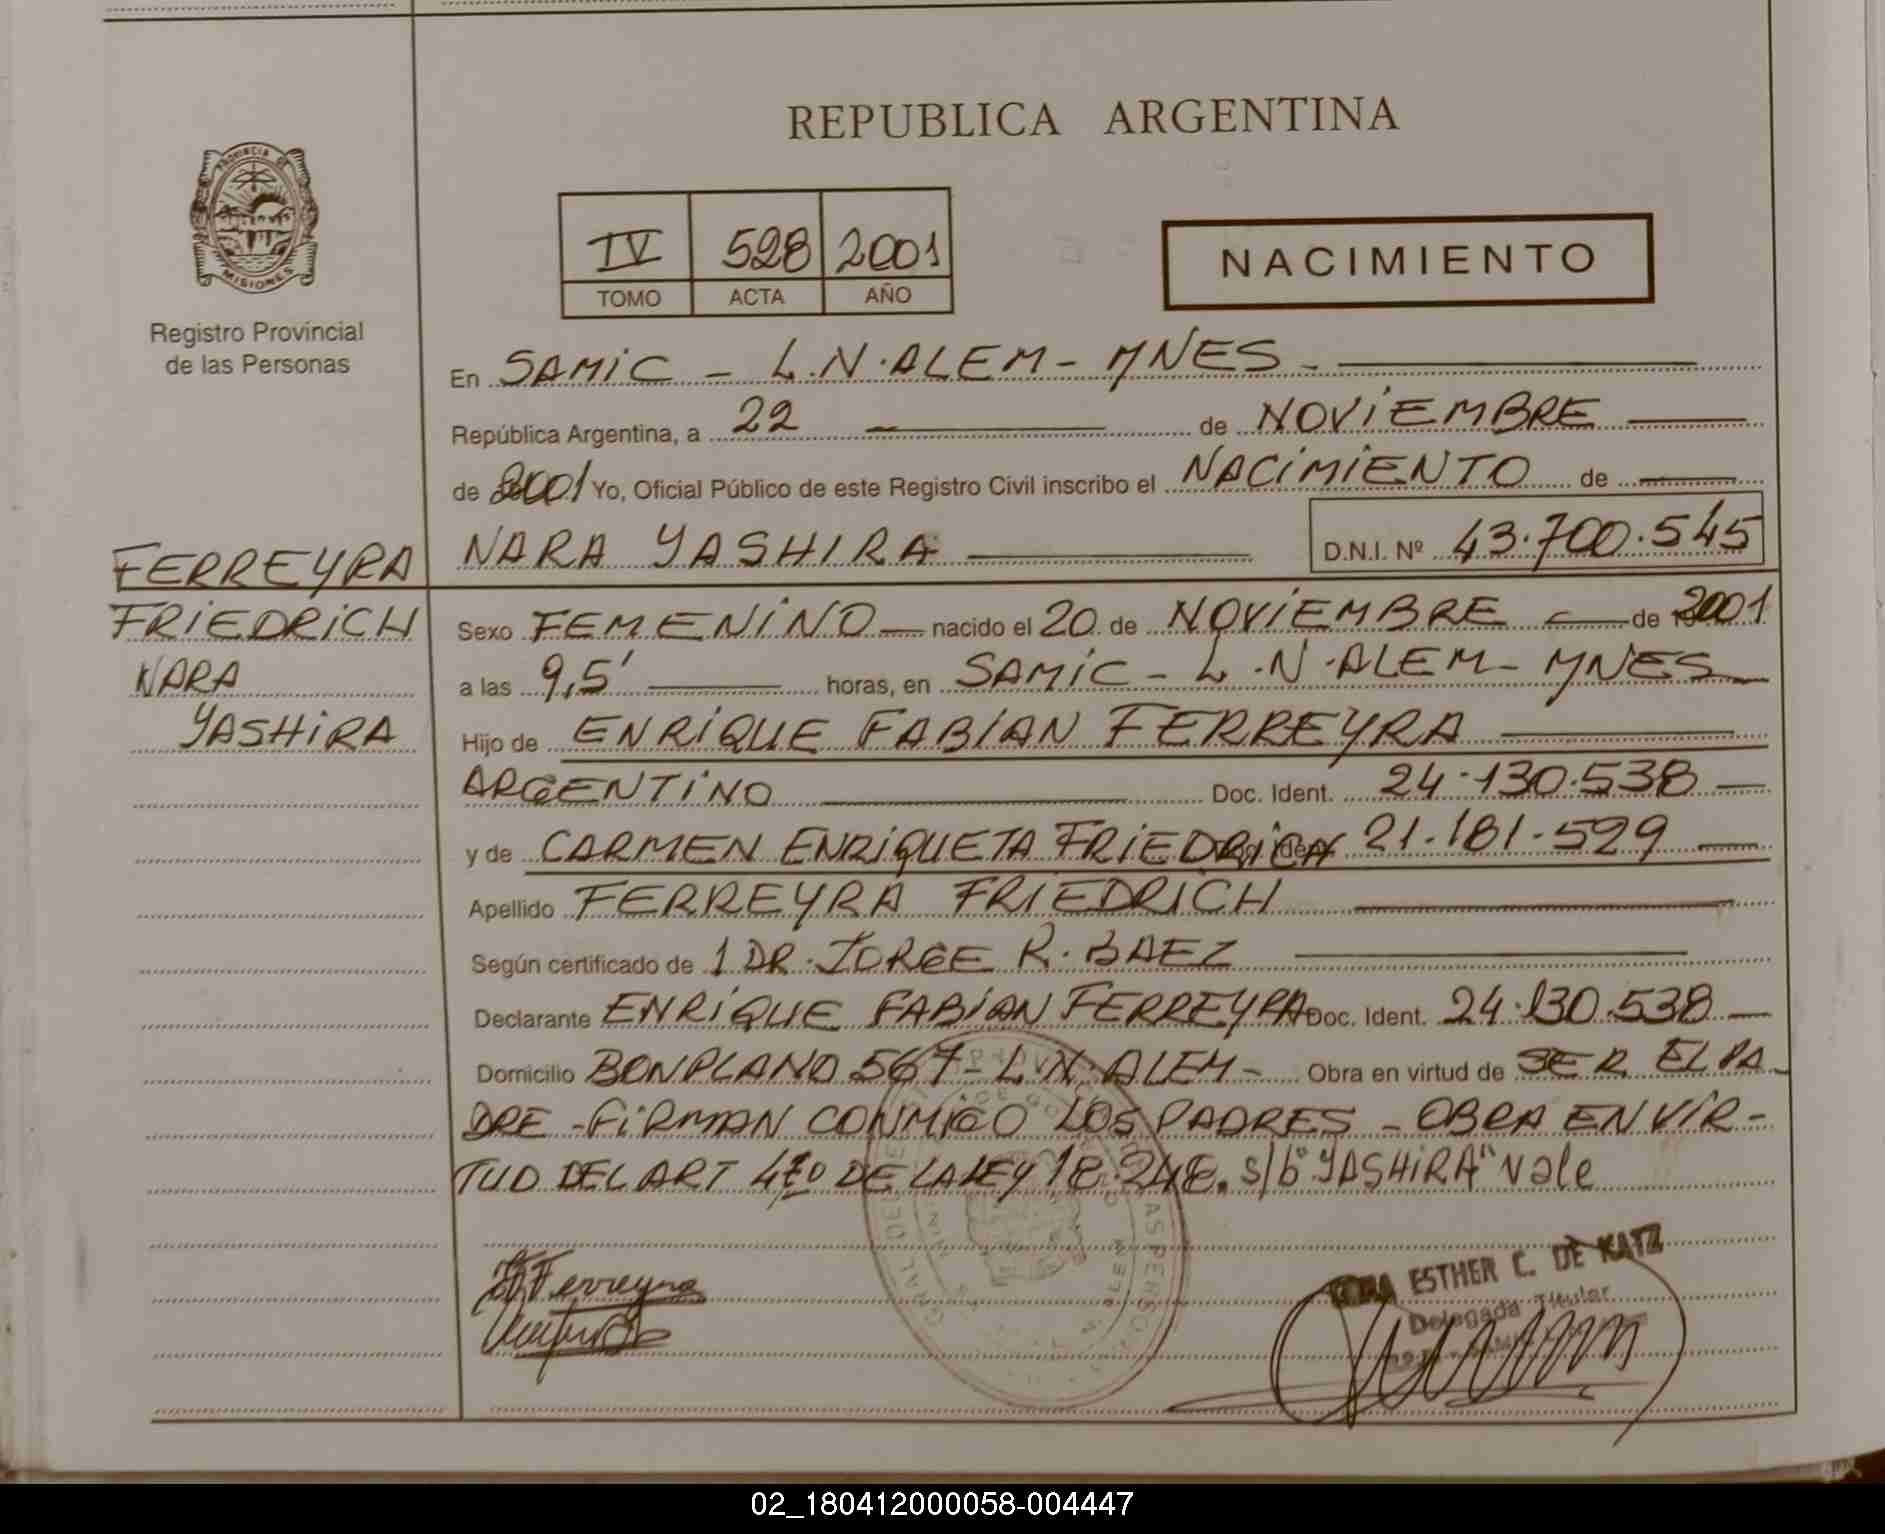 REPUBLICA ARGENTINA
PROVINCIA DE
MISIONES
Registro Provincial
de las Personas
IV 528 2001
TOMO ACTA AÑO
NACIMIENTO
En SAMIC - L.N.ALEM - MNES -
República Argentina, a 22 de NOVIEMBRE
de 2001 Yo, Oficial Público de este Registro Civil inscribo el NACIMIENTO de
NARA YASHIRA D.N.I. Nº 43.700.545
FERREYRA
FRIEDRICH
NARA
YASHIRA
Sexo FEMENINO nacido el 20 de NOVIEMBRE de 2001
a las 9,5' horas, en SAMIC - L.N.ALEM - MNES
Hijo de ENRIQUE FABIAN FERREYRA
ARGENTINO Doc. Ident. 24.130.538
y de CARMEN ENRIQUETA FRIEDRICH 21.181.529
Apellido FERREYRA FRIEDRICH
Según certificado de 1 DR. JORGE R. BAEZ
Declarante ENRIQUE FABIAN FERREYRA Doc. Ident. 24.130.538
Domicilio BONPLAND 567 - L.N. ALEM - Obra en virtud de SER EL PA
DRE - FIRMAN CONMIGO LOS PADRES - OBRA EN VIR-
TUD DEL ART 4to DE LA LEY 18.248. s/b "YASHIRA" vale
Ferreyra
ESTHER C. DE KATZ
Delegada Titular
02_180412000058-004447